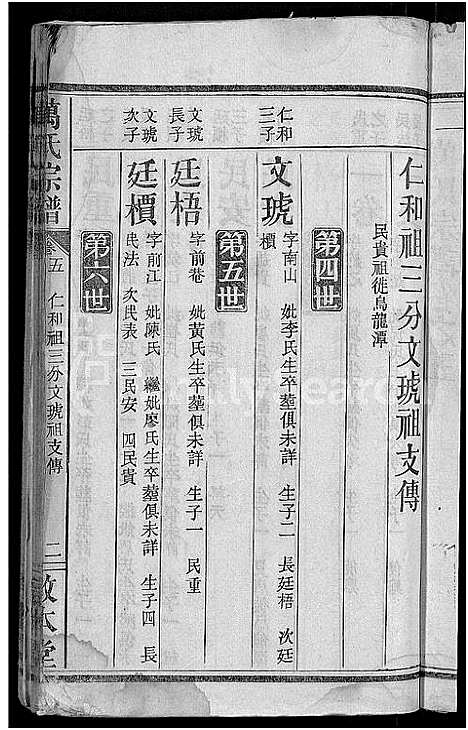 仁和祖三分文琥祖支傳
民貴祖徙烏龍潭
第四世
仁和
三子
文琥
字南山 妣李氏生卒塟俱未詳 生子二 長廷梧 次廷
檟
第五世
文琥
長子
廷梧
字前巷 妣黃氏生卒塟俱未詳 生子一 民重
文琥
次子
廷檟
字前江 妣陳氏 繼妣廖氏生卒塟俱未詳 生子四 長
民法 次民表 三民安 四民貴
第六世
萬氏宗譜
卷五 仁和祖三分文琥祖支傳
二
敦本堂